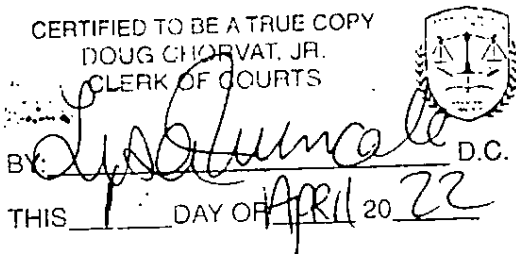 CERTIFIED TO BE A TRUE COPY
DOUG CHORVAT, JR.
CLERK OF COURTS
BY: D.C.
THIS 1 DAY OF APRIL 20 22